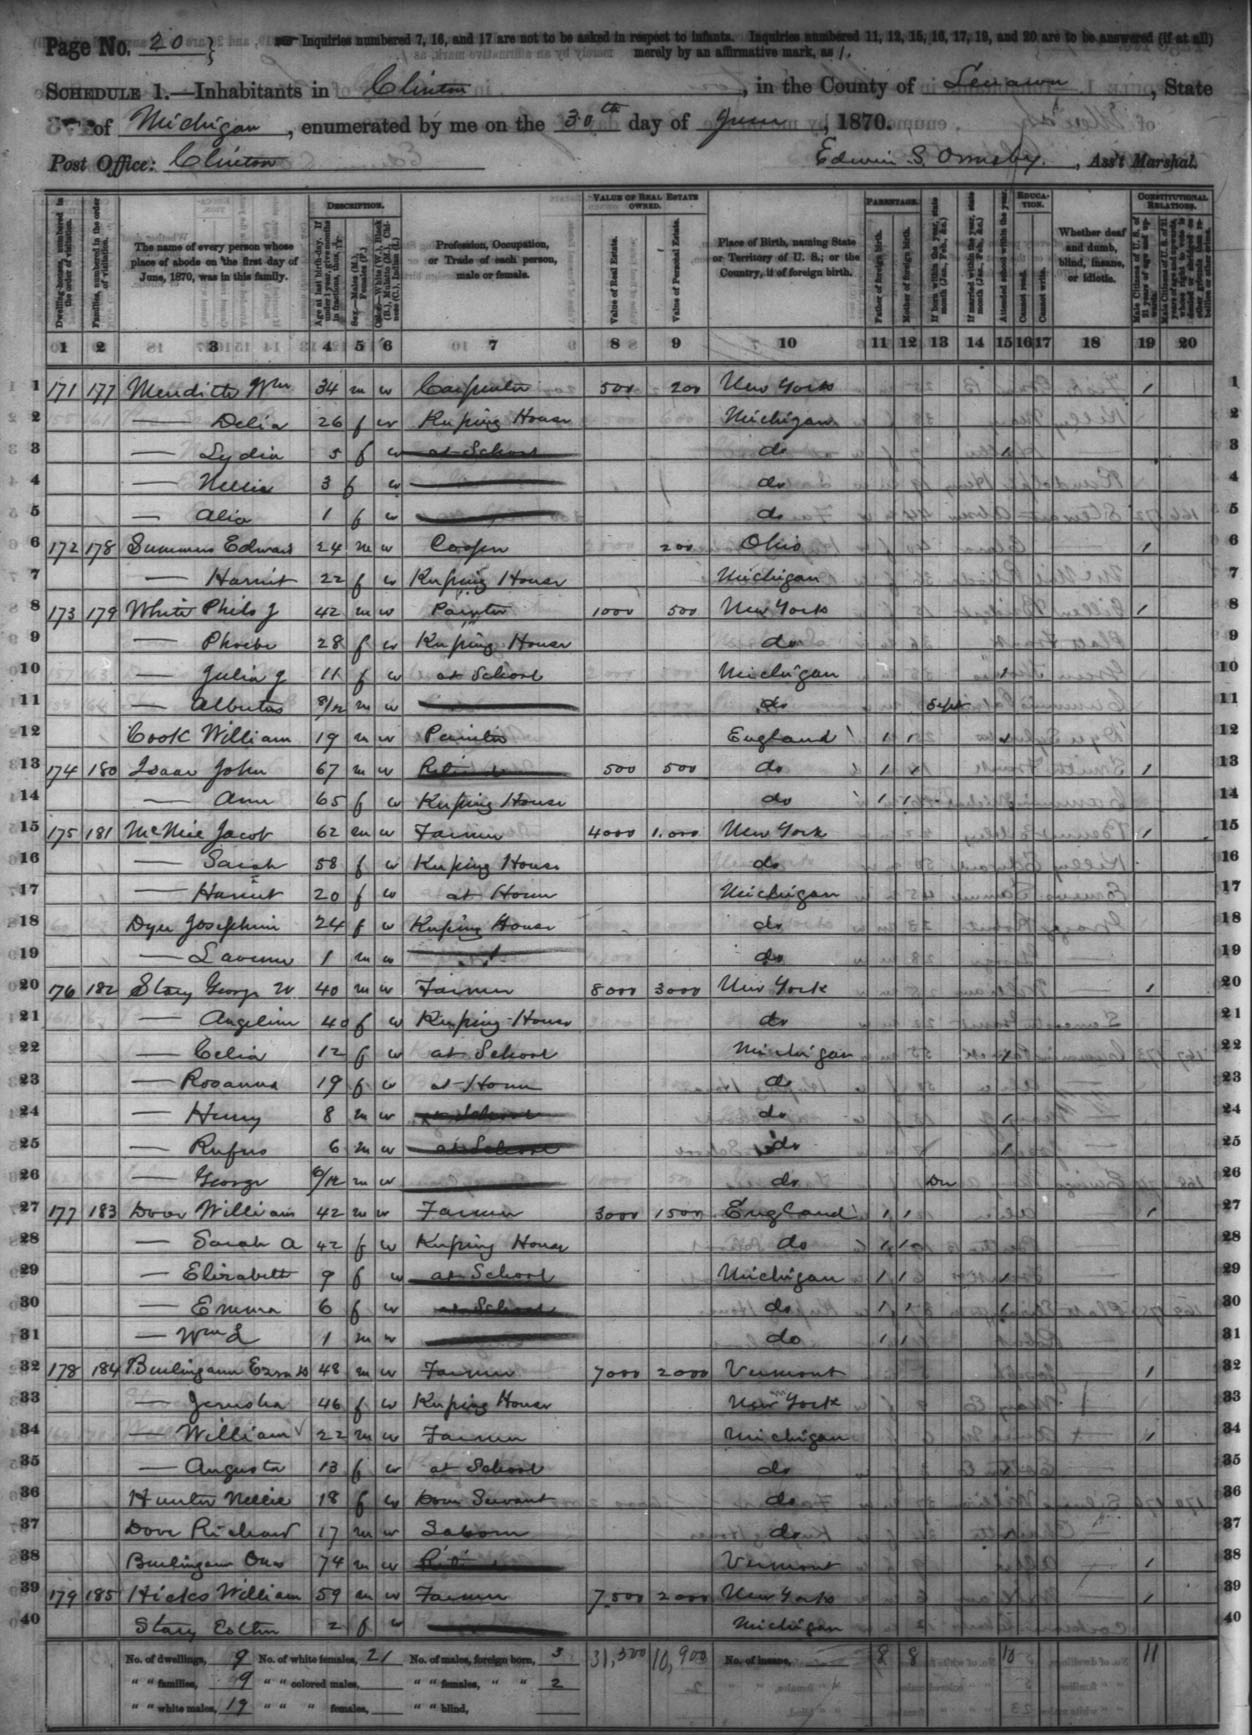 Page No. 20 } Inquiries numbered 7, 16, and 17 are not to be asked in respect to infants. Inquiries numbered 11, 12, 15, 16, 17, 19, and 20 are to be answered (if at all)
merely by an affirmative mark, as /.
SCHEDULE 1.—Inhabitants in Clinton, in the County of Lenawee, State
of Michigan, enumerated by me on the 30th day of June, 1870.
Post Office: Clinton Edwin S. Ormsby, Ass't Marshal.
Dwelling-houses, numbered in the order of visitation.
Families, numbered in the order of visitation.
The name of every person whose place of abode on the first day of June, 1870, was in this family.
DESCRIPTION.
Age at last birth-day. If under 1 year, give months in fractions, thus, 3/12
Sex.—Males (M.), Females (F.)
Color.—White (W.), Black (B.), Mulatto (M.), Chinese (C.), Indian (I.)
Profession, Occupation, or Trade of each person, male or female.
VALUE OF REAL ESTATE OWNED.
Value of Real Estate.
Value of Personal Estate.
Place of Birth, naming State or Territory of U. S.; or the Country, if of foreign birth.
PARENTAGE.
Father of foreign birth.
Mother of foreign birth.
If born within the year, state month (Jan., Feb., &c.)
If married within the year, state month (Jan., Feb., &c.)
EDUCATION.
Attended school within the year.
Cannot read.
Cannot write.
Whether deaf and dumb, blind, insane, or idiotic.
CONSTITUTIONAL RELATIONS.
Male Citizens of U. S. of 21 years of age and upwards.
1 2 3 4 5 6 7 8 9 10 11 12 13 14 15 16 17 18 19 20
1 171 177 Meredith Wm 34 m w Carpenter 500 200 New York / 1
2 — Delia 26 f w Keeping House Michigan 2
3 — Lydia 5 f w at School do / 3
4 — Nellie 3 f w do 4
5 — Alia 1 f w do 5
6 172 178 Summers Edward 24 m w Cooper 200 Ohio / 6
7 — Harriet 22 f w Keeping House Michigan 7
8 173 179 White Philo J 42 m w Painter 1000 500 New York / 8
9 — Phoebe 28 f w Keeping House do 9
10 — Julia J 11 f w at School Michigan / 10
11 — Albertus 8/12 m w do Sept 11
12 Cook William 19 m w Painter England / / / 12
13 174 180 Isaac John 67 m w Retired 500 500 do / / / 13
14 — Ann 65 f w Keeping House do / / 14
15 175 181 McNiel Jacob 62 m w Farmer 4000 1.000 New York / 15
16 — Sarah 58 f w Keeping House do 16
17 — Harriet 20 f w at Home Michigan 17
18 Dyer Josephine 24 f w Keeping House do 18
19 — Laverne 1 m w do 19
20 176 182 Stacy George W 40 m w Farmer 8000 3000 New York / 20
21 — Angeline 40 f w Keeping House do 21
22 — Celia 12 f w at School Michigan / 22
23 — Rosanna 19 f w at Home do 23
24 — Henry 8 m w at School do / 24
25 — Rufus 6 m w at School do / 25
26 — George 6/12 m w do Dec 26
27 177 183 Dove William 42 m w Farmer 3000 1500 England / / / 27
28 — Sarah A 42 f w Keeping House do / / 28
29 — Elizabeth 9 f w at School Michigan / / / 29
30 — Emma 6 f w at School do / / / 30
31 — Wm L 1 m w do / / 31
32 178 184 Burlingame Ezra D 48 m w Farmer 7000 2000 Vermont / 32
33 — Jerusha 46 f w Keeping House New York 33
34 — William 22 m w Farmer Michigan / 34
35 — Augusta 13 f w at School do 35
36 Hunter Nellie 18 f w Dom Servant do 36
37 Dove Richard 17 m w Laborer do / 37
38 Burlingame 74 m w Retired Vermont / 38
39 179 185 Hicks William 59 m w Farmer 7.500 2000 New York / 39
40 Stacy Esther 2 f w Michigan 40
No. of dwellings, 9 No. of white females, 21 No. of males, foreign born, 3 31,500 10,900 No. of insane, 8 8 10 11
" " families, 9 " " colored males, " " females, " " 2
" " white males, 19 " " " females, " " blind,